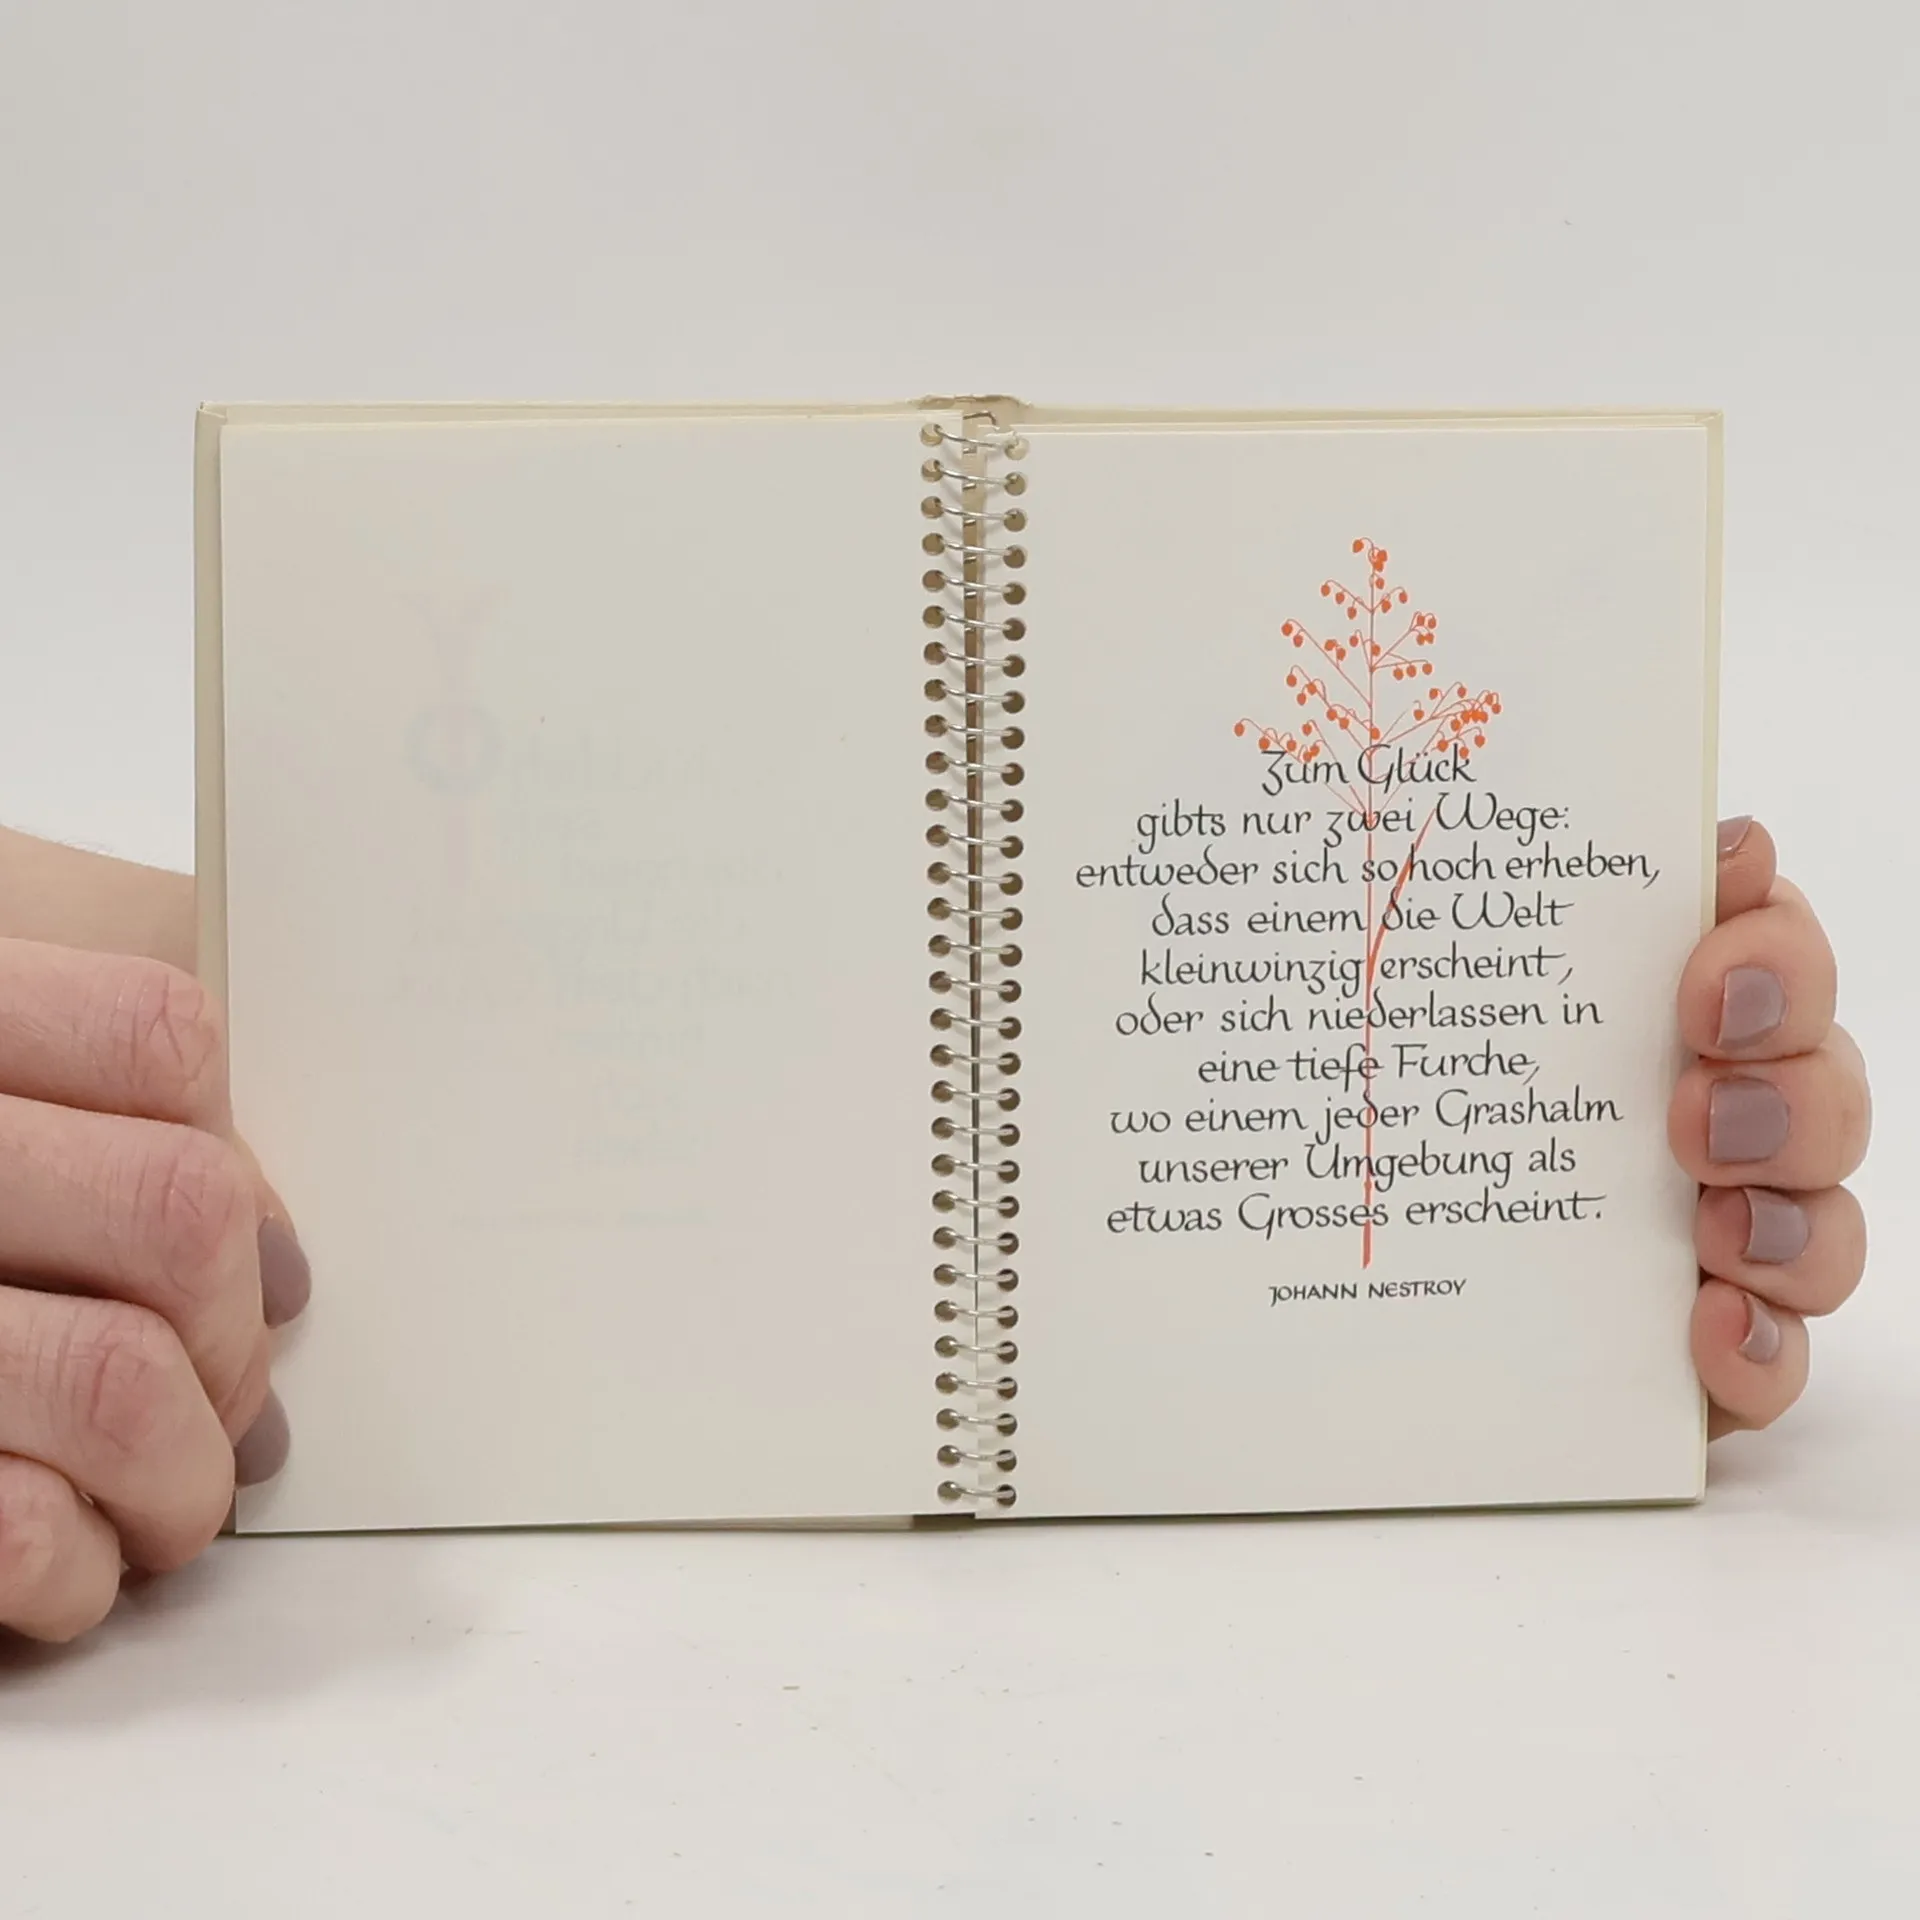 Zum Glück
gibts nur zwei Wege:
entweder sich so hoch erheben,
dass einem die Welt
kleinwinzig erscheint,
oder sich niederlassen in
eine tiefe Furche,
wo einem jeder Grashalm
unserer Umgebung als
etwas Grosses erscheint.
JOHANN NESTROY